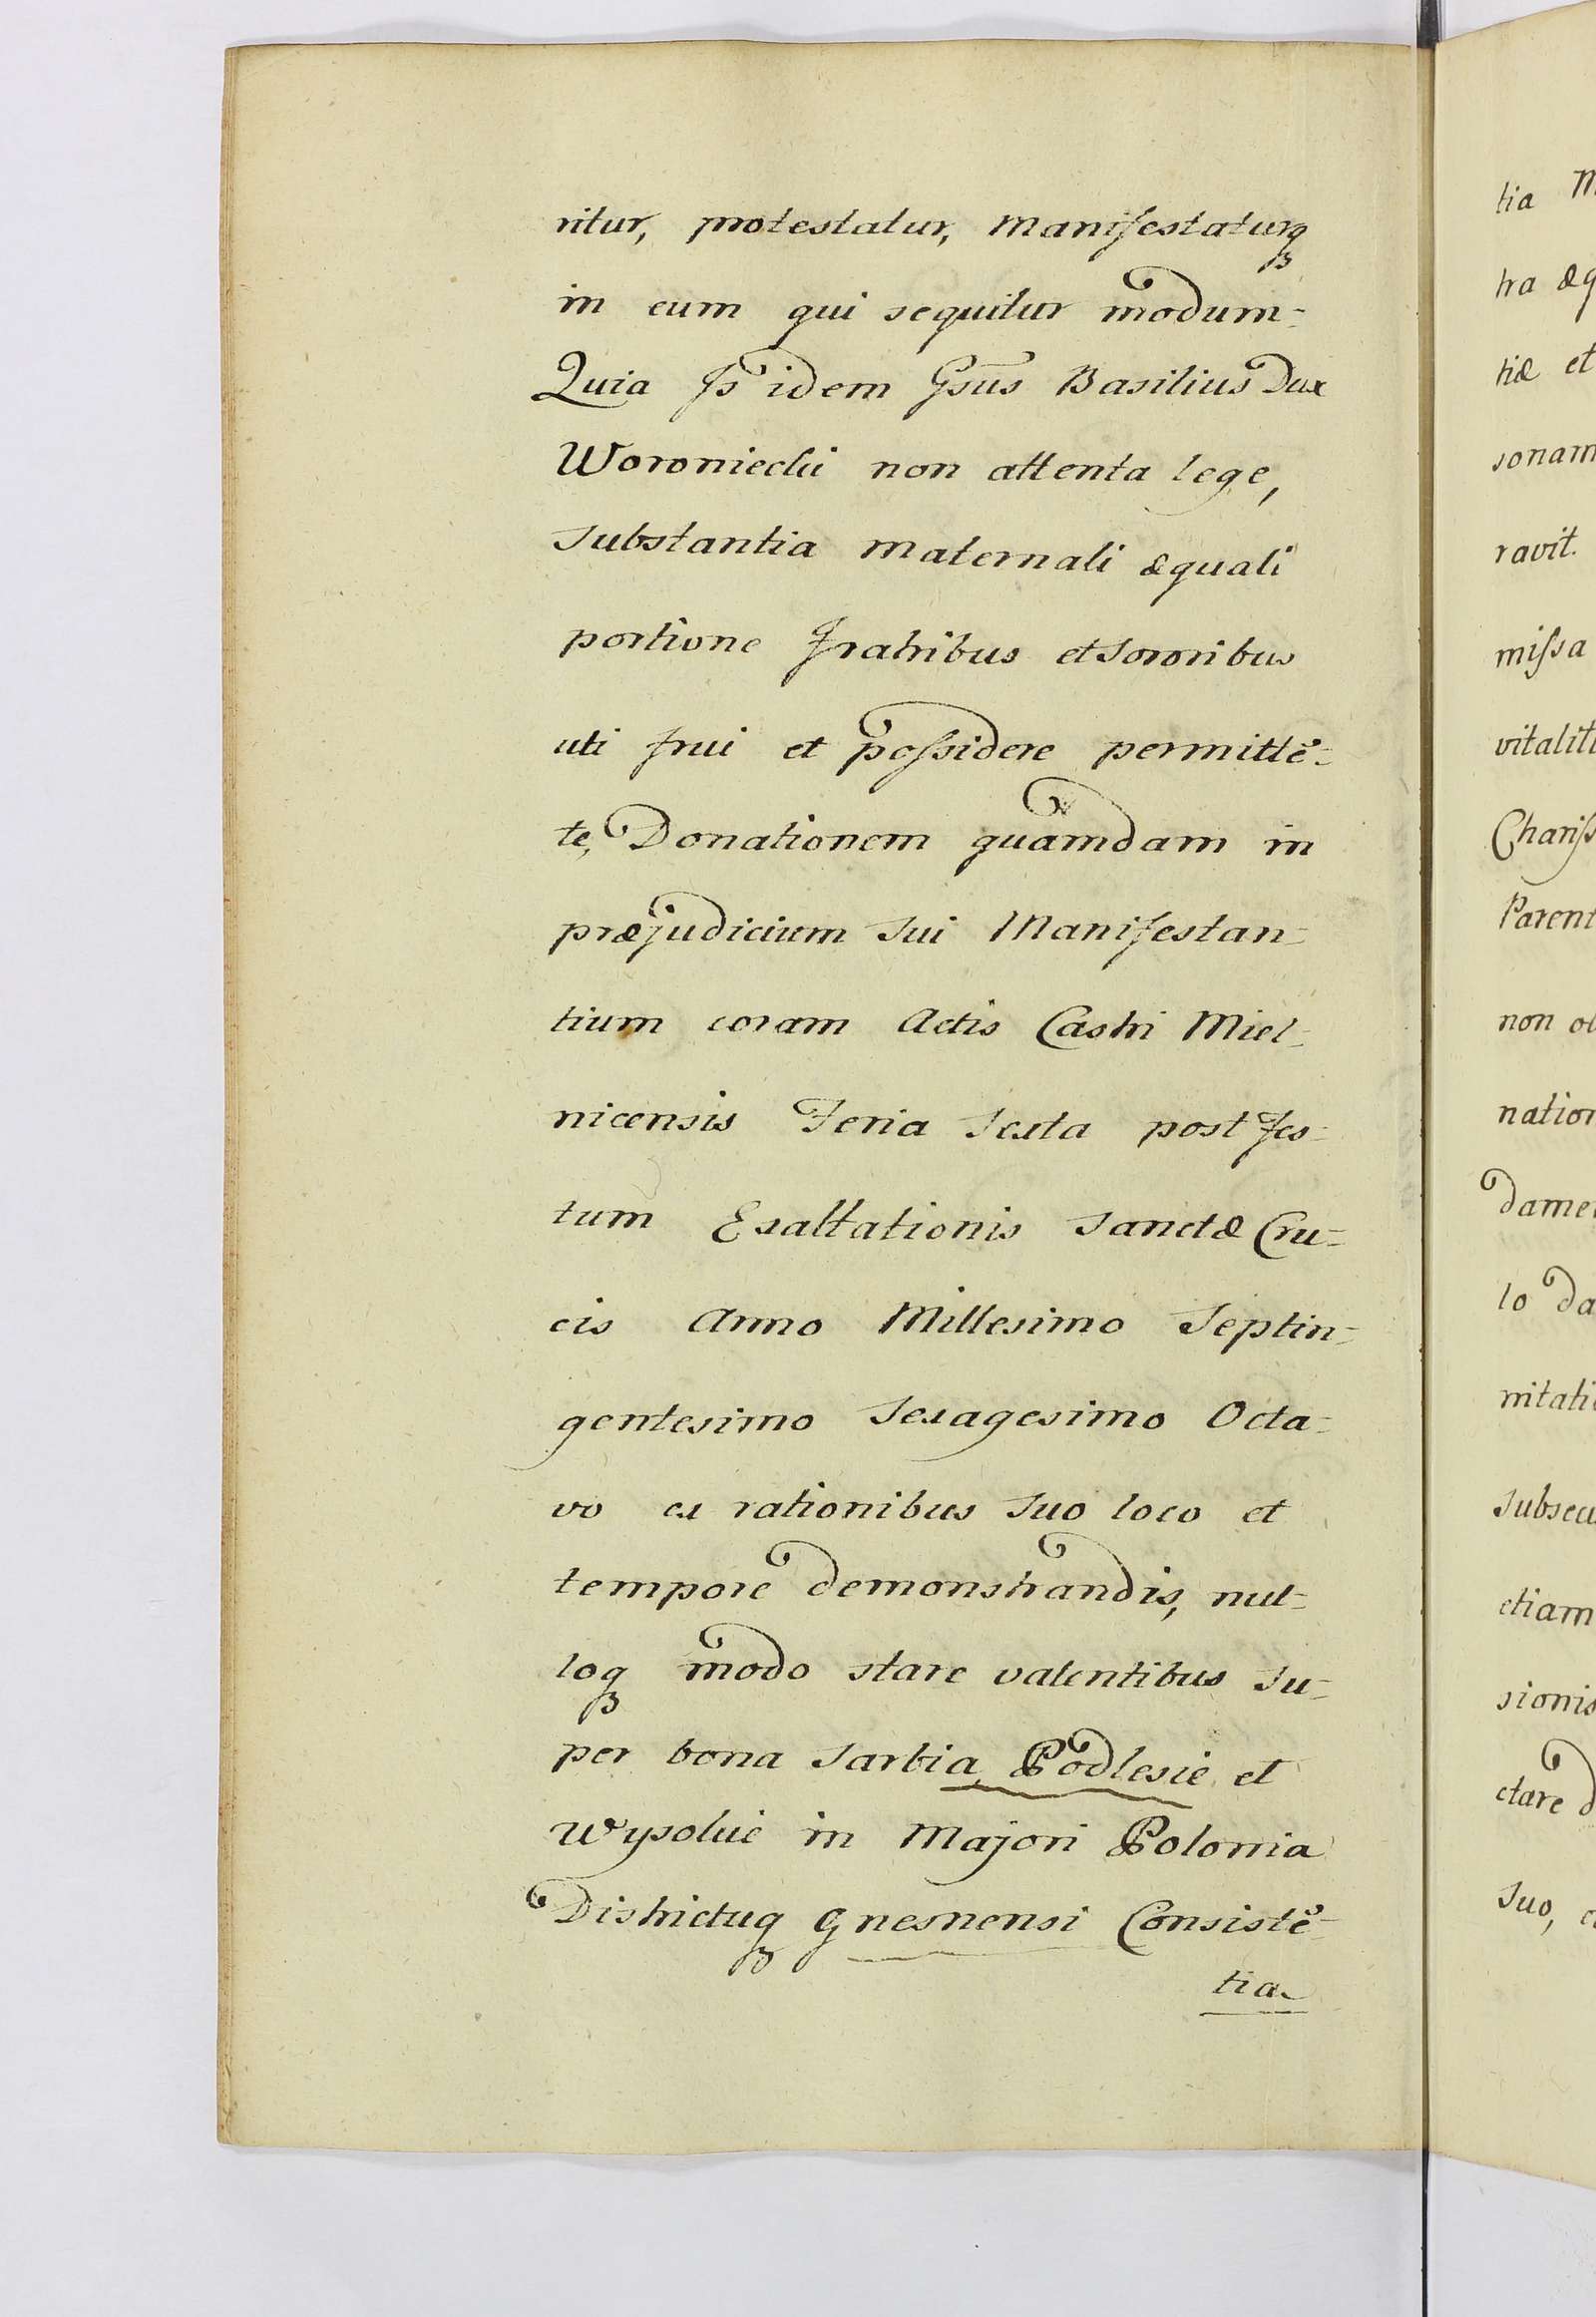 ritur, protestatur, Manifestaturq̃
in eum qui sequitur modum=
Quia Js idem Gsūs Basilius Dux
Woroniecki non attenta lege,
Substantia Maternali æquali
portione Fratribus et Sororibus
uti frui et poſsidere permittē=
te, Donationem quamdam in
præjudicium Sui Manifestan=
tium coram Actis Castri Miel=
nicensis Feria Sexta post Fes=
tum Exaltationis Sanctæ Cru=
cis Anno Millesimo Septin=
gentesimo Sexagesimo Octa=
vo ex rationibus Suo loco et
tempore demonstrandis, nul=
loq̃ modo stare valentibus Su=
per bona Sarbia, Podlesie et
Wysokie in Majori Polonia
Districtuq̃ Gnesnensi Consistē=
tia
tia
tra æq
tiæ et
sonam
ravit.
miſsa
vitaliti
Chariſs
Parent
non ob
nation
damen
lo da
nitati
Subsecu
etiam
sionis
ctare d
Suo,